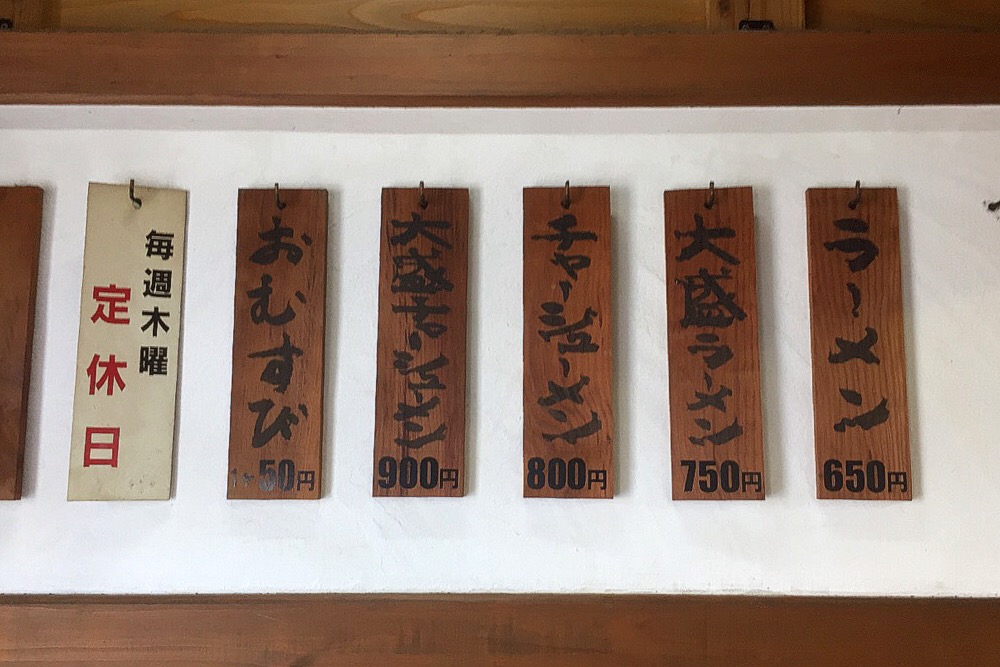 ラーメン
650円
大盛ラーメン
750円
チャーシューメン
800円
大盛チャーシューメン
900円
おむすび
1ヶ50円
毎週木曜
定休日